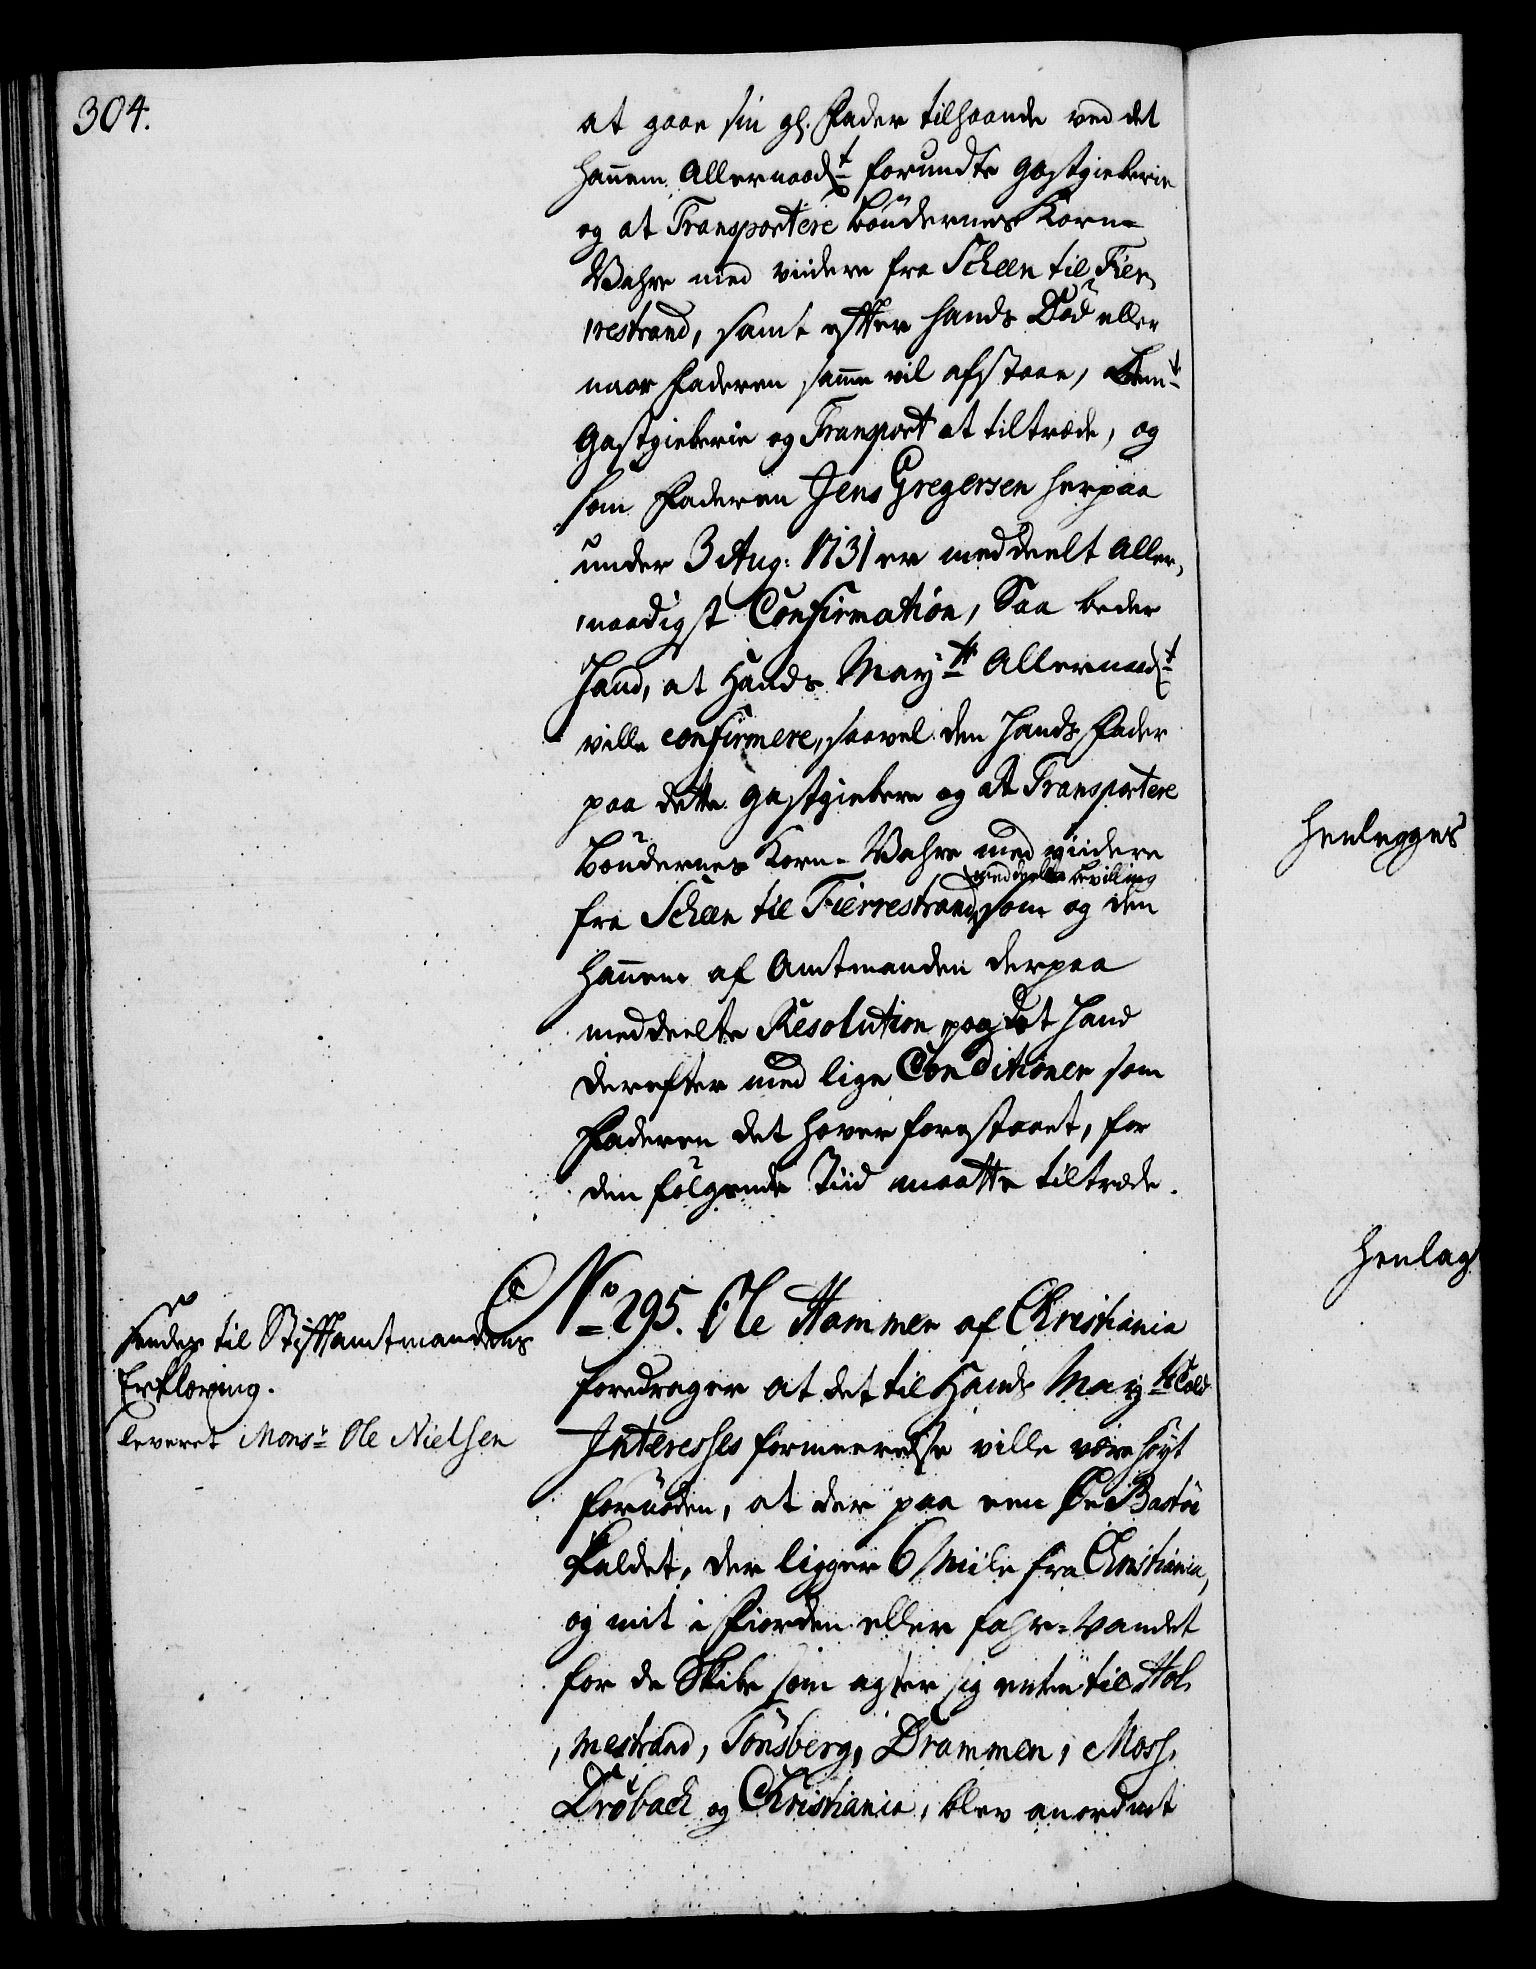 304.
at gaae sin gl. Fader tilhaande ved det
hannem Allernaadt forundte Gæstgieberie
og at Transportere Bøndernes Korn-
Vahre med viidere fra Scheen til Fier,
restrand, samt efter hands Död eller
naar Faderen samme vil afstaae, bemt
Gæstgieberie og Transport at tiltræde, og
som Faderen Jens Gregersen herpaa
under 3 Aug: 1731 er meddeelt Aller,
naadigst Confirmation, Saa beder
Hand, at Hands Mayts Allernaadt
ville confirmere, saavel den Hands Fader
paa dette Gæstgieberie og at Transportere
Bøndernes Korn-Vahre med viidere
meddeelte bevilling
fra Scheen til Fierrestrand, som og den
hannem af Amtmanden derpaa
meddeelte Resolution, paa det Hand
derefter med lige Conditioner som
Faderen det haver forestaaet, for
den følgende Tiid maatte tiltræde.
No 295. Ole Hammer af Christiania
foredrager at det til Hands Mayts Told
Interesses formeerelse ville være høyt
fornøden, at der paa een Øe Bastöe
kaldet, der ligger 6 Miile fra Christiania,
og mit i Fiorden eller fahr-Vandet
for de Skibe som agter sig enten til Hol,
mestrand, Tönsberg, Drammen, Moss,
Dröbach og Christiania, blev anordnet
sendes til Stiftamtmandens
Erklæring.
leveret Monsr Ole Nielsen
henlegges
henlag